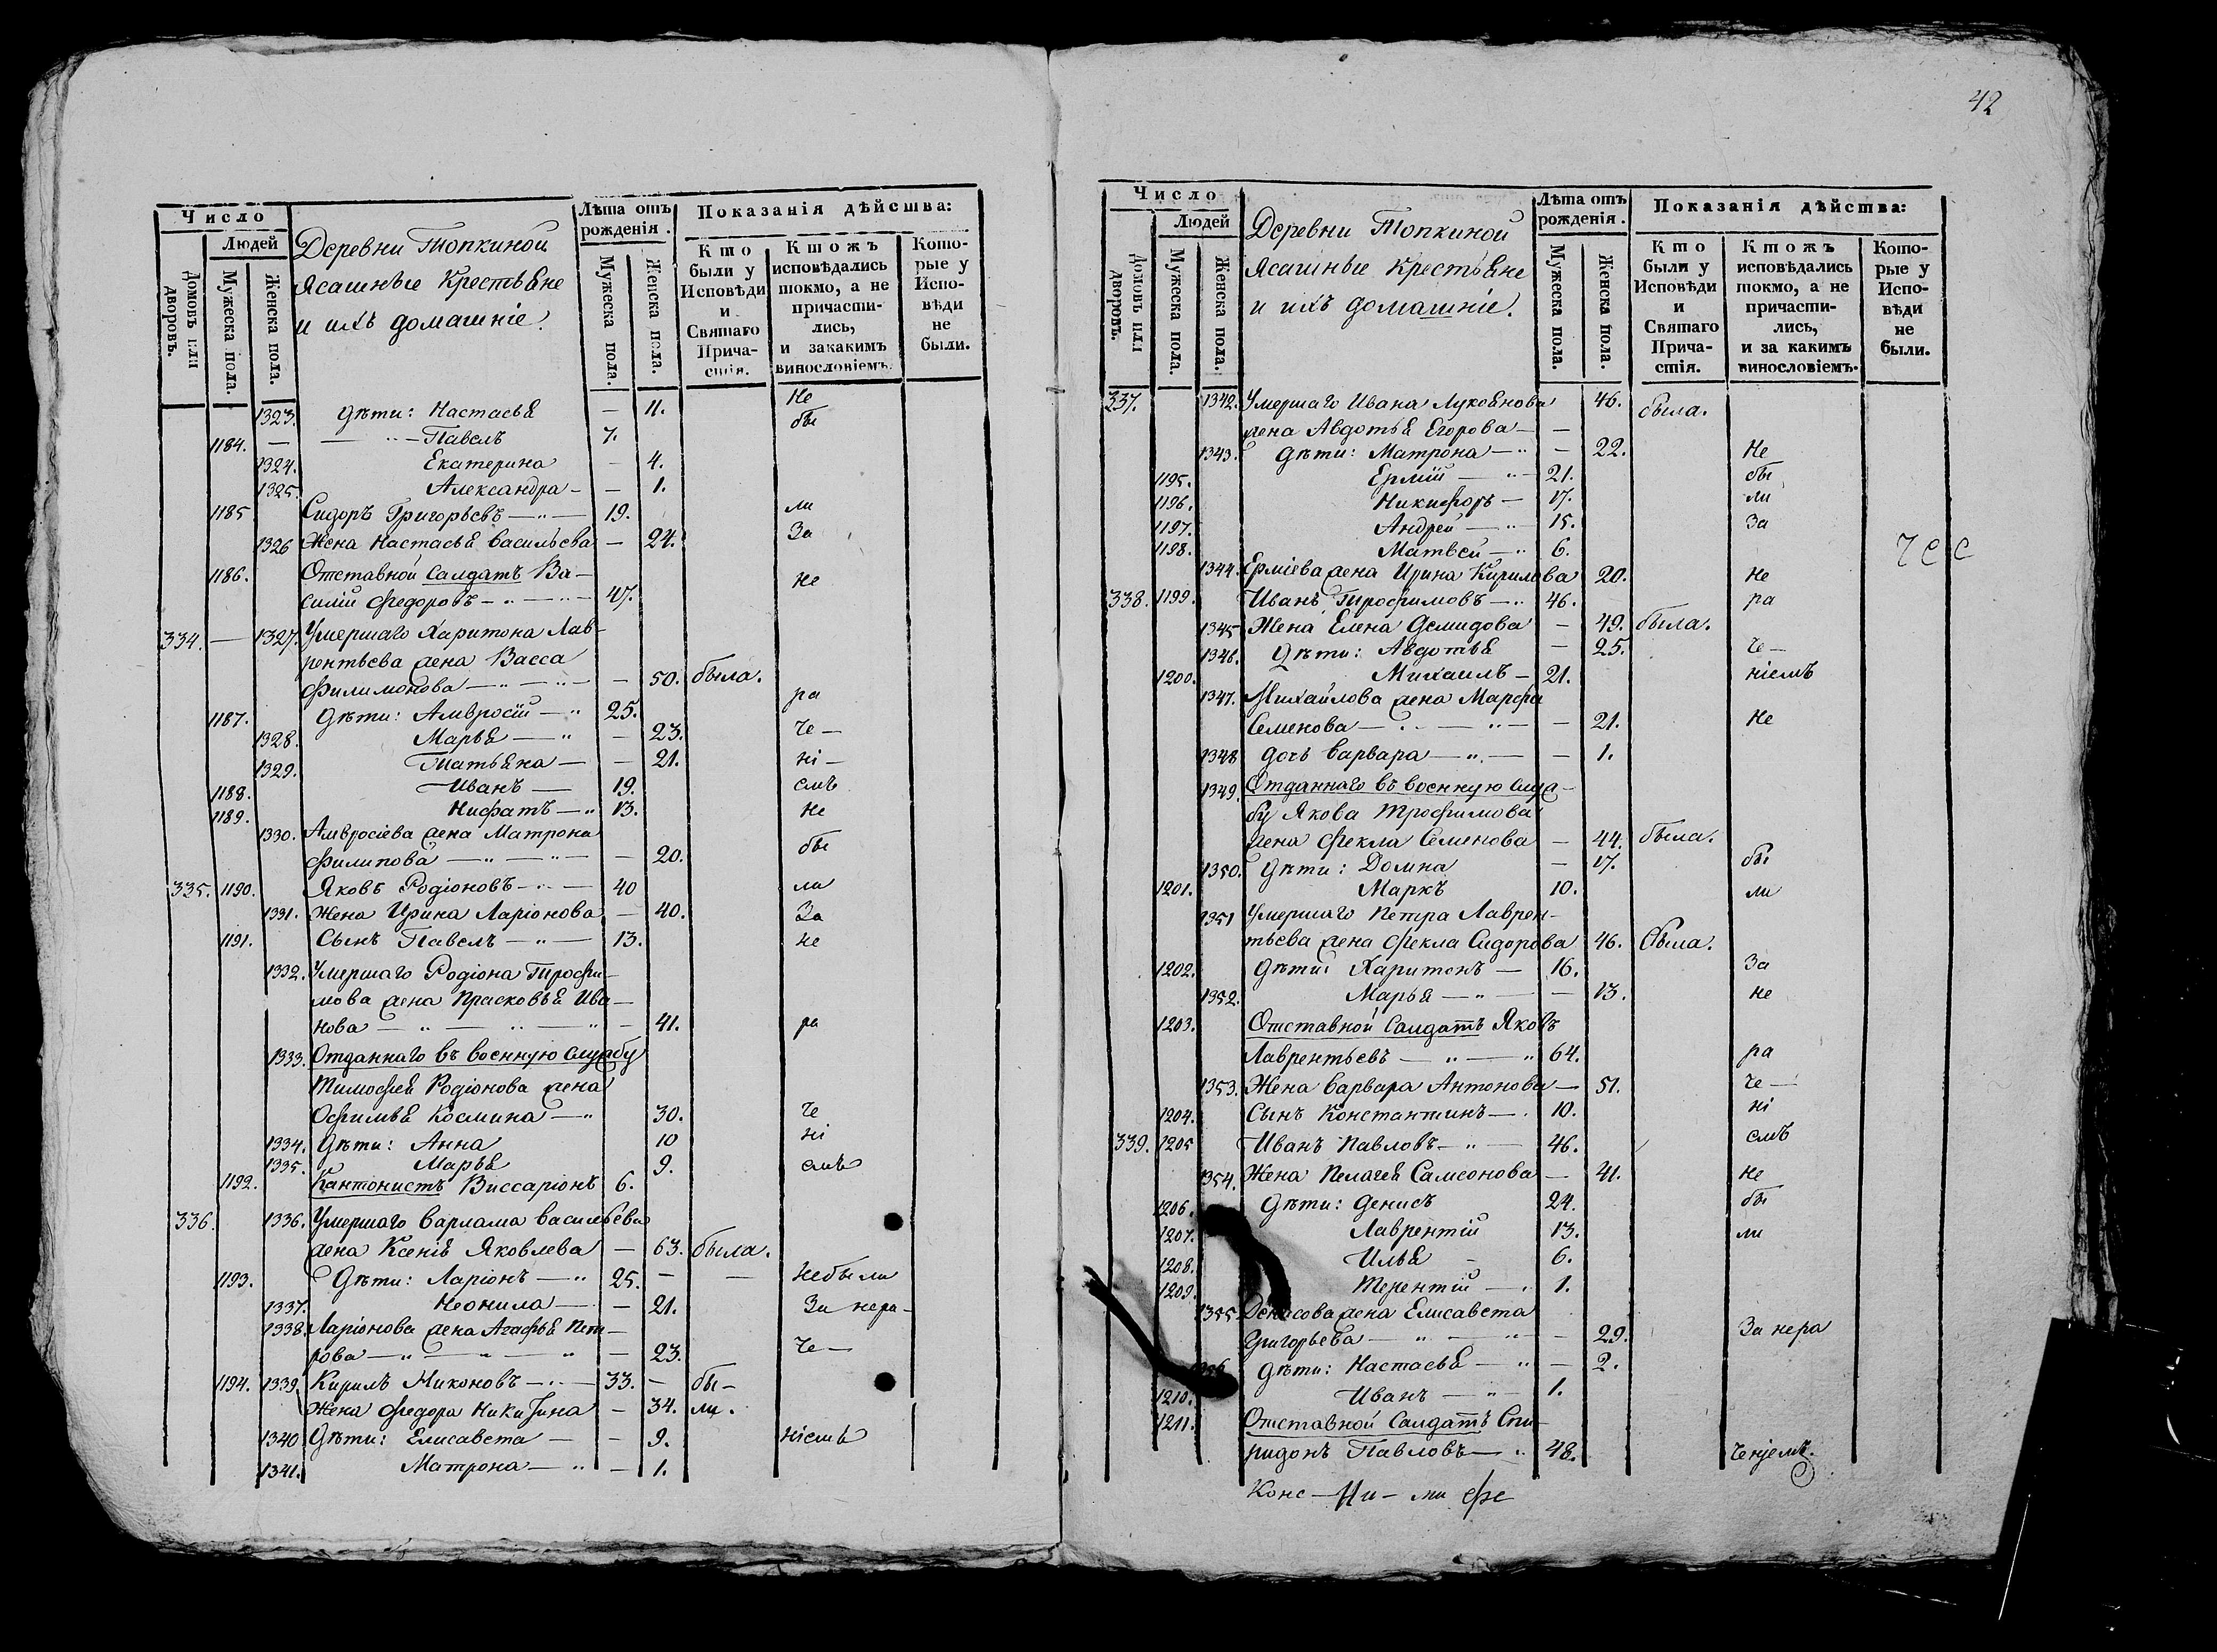 Число
Людей
Домовъ или дворовъ.
Мужеска пола.
Женска пола.
Деревни Топкиной
Ясашные Крестьяне
и ихъ домашніе.
Лѣта отъ рожденія.
Мужеска пола.
Женска пола.
Показанія дѣйства:
Кто были у Исповѣди и Святаго Причастія.
Ктожъ исповѣдались токмо, а не причастились, и закакимъ винословіемъ.
Которые у Исповѣди не были.
1323. Дѣти: Настасья — 11. Не
1184. — Павелъ 7. бы
1324. Екатерина — 4.
1325. Александра — — 1.
1185 Сидоръ Григорьевъ — 19. ли
1326 Жена Настасья Васильева — 24. За
1186. Отставной Салдатъ Ва-
силій Федоровъ — 47. не
334. — 1327. Умершаго Харитона Лав-
рентьева жена Васса
Филимонова — — 50. была.
1187. Дѣти: Амвросій — 25. ра
1328. Марья — — 23. че —
1329. Татьяна — — 21. ні —
1188. Иванъ — 19. емъ
1189. Нифатъ — 13. Не
1330. Амвросіева жена Матрона
Филипова — — 20. бы
335. 1190. Яковъ Родіоновъ — 40 ли
1331. Жена Ирина Ларіонова — 40. За
1191. Сынъ Павелъ — 13. не
1332. Умершаго Родіона Трофи-
мова жена Прасковья Ива-
нова — — 41. ра
1333. Отданнаго въ военную службу
Тимофея Родіонова жена
Офимья Космина — 30. че
1334. Дѣти: Анна 10 ні
1335. Марья 9. емъ
1192. Кантонистъ Виссаріонъ 6.
336. 1336. Умершаго Варлама Васильева
жена Ксенія Яковлева — 63. была.
1193. Дѣти: Ларіонъ — 25. — — Небыли
1337. Неонила — — 21. За нера-
1338. Ларіонова жена Агафья Пет-
рова — — 23. че —
1194. 1339. Кирилъ Миконовъ — 33. — бы-
Жена Федора Никитина — 34. ли.
1340 Дѣти: Елисавета — — 9. ніемъ
1341. Матрона — — 1.
42
Число
Людей
Домовъ или дворовъ.
Мужеска пола.
Женска пола.
Деревни Топкиной
Ясашные Крестьяне
и ихъ домашніе.
Лѣта отъ рожденія.
Мужеска пола.
Женска пола.
Показанія дѣйства:
Кто были у Исповѣди и Святаго Причастія.
Ктожъ исповѣдались токмо, а не причастились, и за какимъ винословіемъ.
Которые у Исповѣди не были.
337. 1342. Умершаго Ивана Лукоянова 46. была.
жена Авдотья Егорова — —
1343. Дѣти: Матрона — — 22. Не
1195. Ермій — 21. бы
1196. Никифоръ — 17. ли
1197. Андрей — 15. За
1198. Матвей — 6.
1344. Ерміева жена Ирина Кирилова 20. не
338. 1199. Иванъ Трофимовъ — 46. ра
1345 Жена Елена Демидова — 49. была.
1346. Дѣти: Авдотья — 25. че —
1200. Михаилъ — 21. ніемъ
1347. Михайлова жена Марфа
Семенова — — 21. Не
1348 дочь Варвара — — 1.
1349. Отданнаго въ военную служ-
бу Якова Трофимова
жена Фекла Семенова — 44. была.
1350. Дѣти: Домна — 17. бы
1201. Маркъ 10. ли
1351 Умершаго Петра Лаврен-
тьева жена Фекла Сидорова 46. была.
1202. Дѣти: Харитонъ — 16. За
1352. Марья — — 13. не
1203. Отставной Салдатъ Яковъ
Лаврентьевъ — 64. ра
1353. Жена Варвара Антонова — 51. че —
1204. Сынъ Константинъ — 10. ні
339. 1205 Иванъ Павловъ — 46. емъ
1354. Жена Пелагея Самсонова — 41. Не
1206. Дѣти: Денисъ 24. бы
1207. Лаврентій 13. ли
1208. Илья — 6.
1209. Терентій — 1.
1355 Денисова жена Елисавета
Григорьева — — 29. За нера
Дѣти: Настасья — — 2.
1210. Иванъ — 1.
1211. Отставной Салдатъ Спи-
ридонъ Павловъ — 48. ченіемъ.